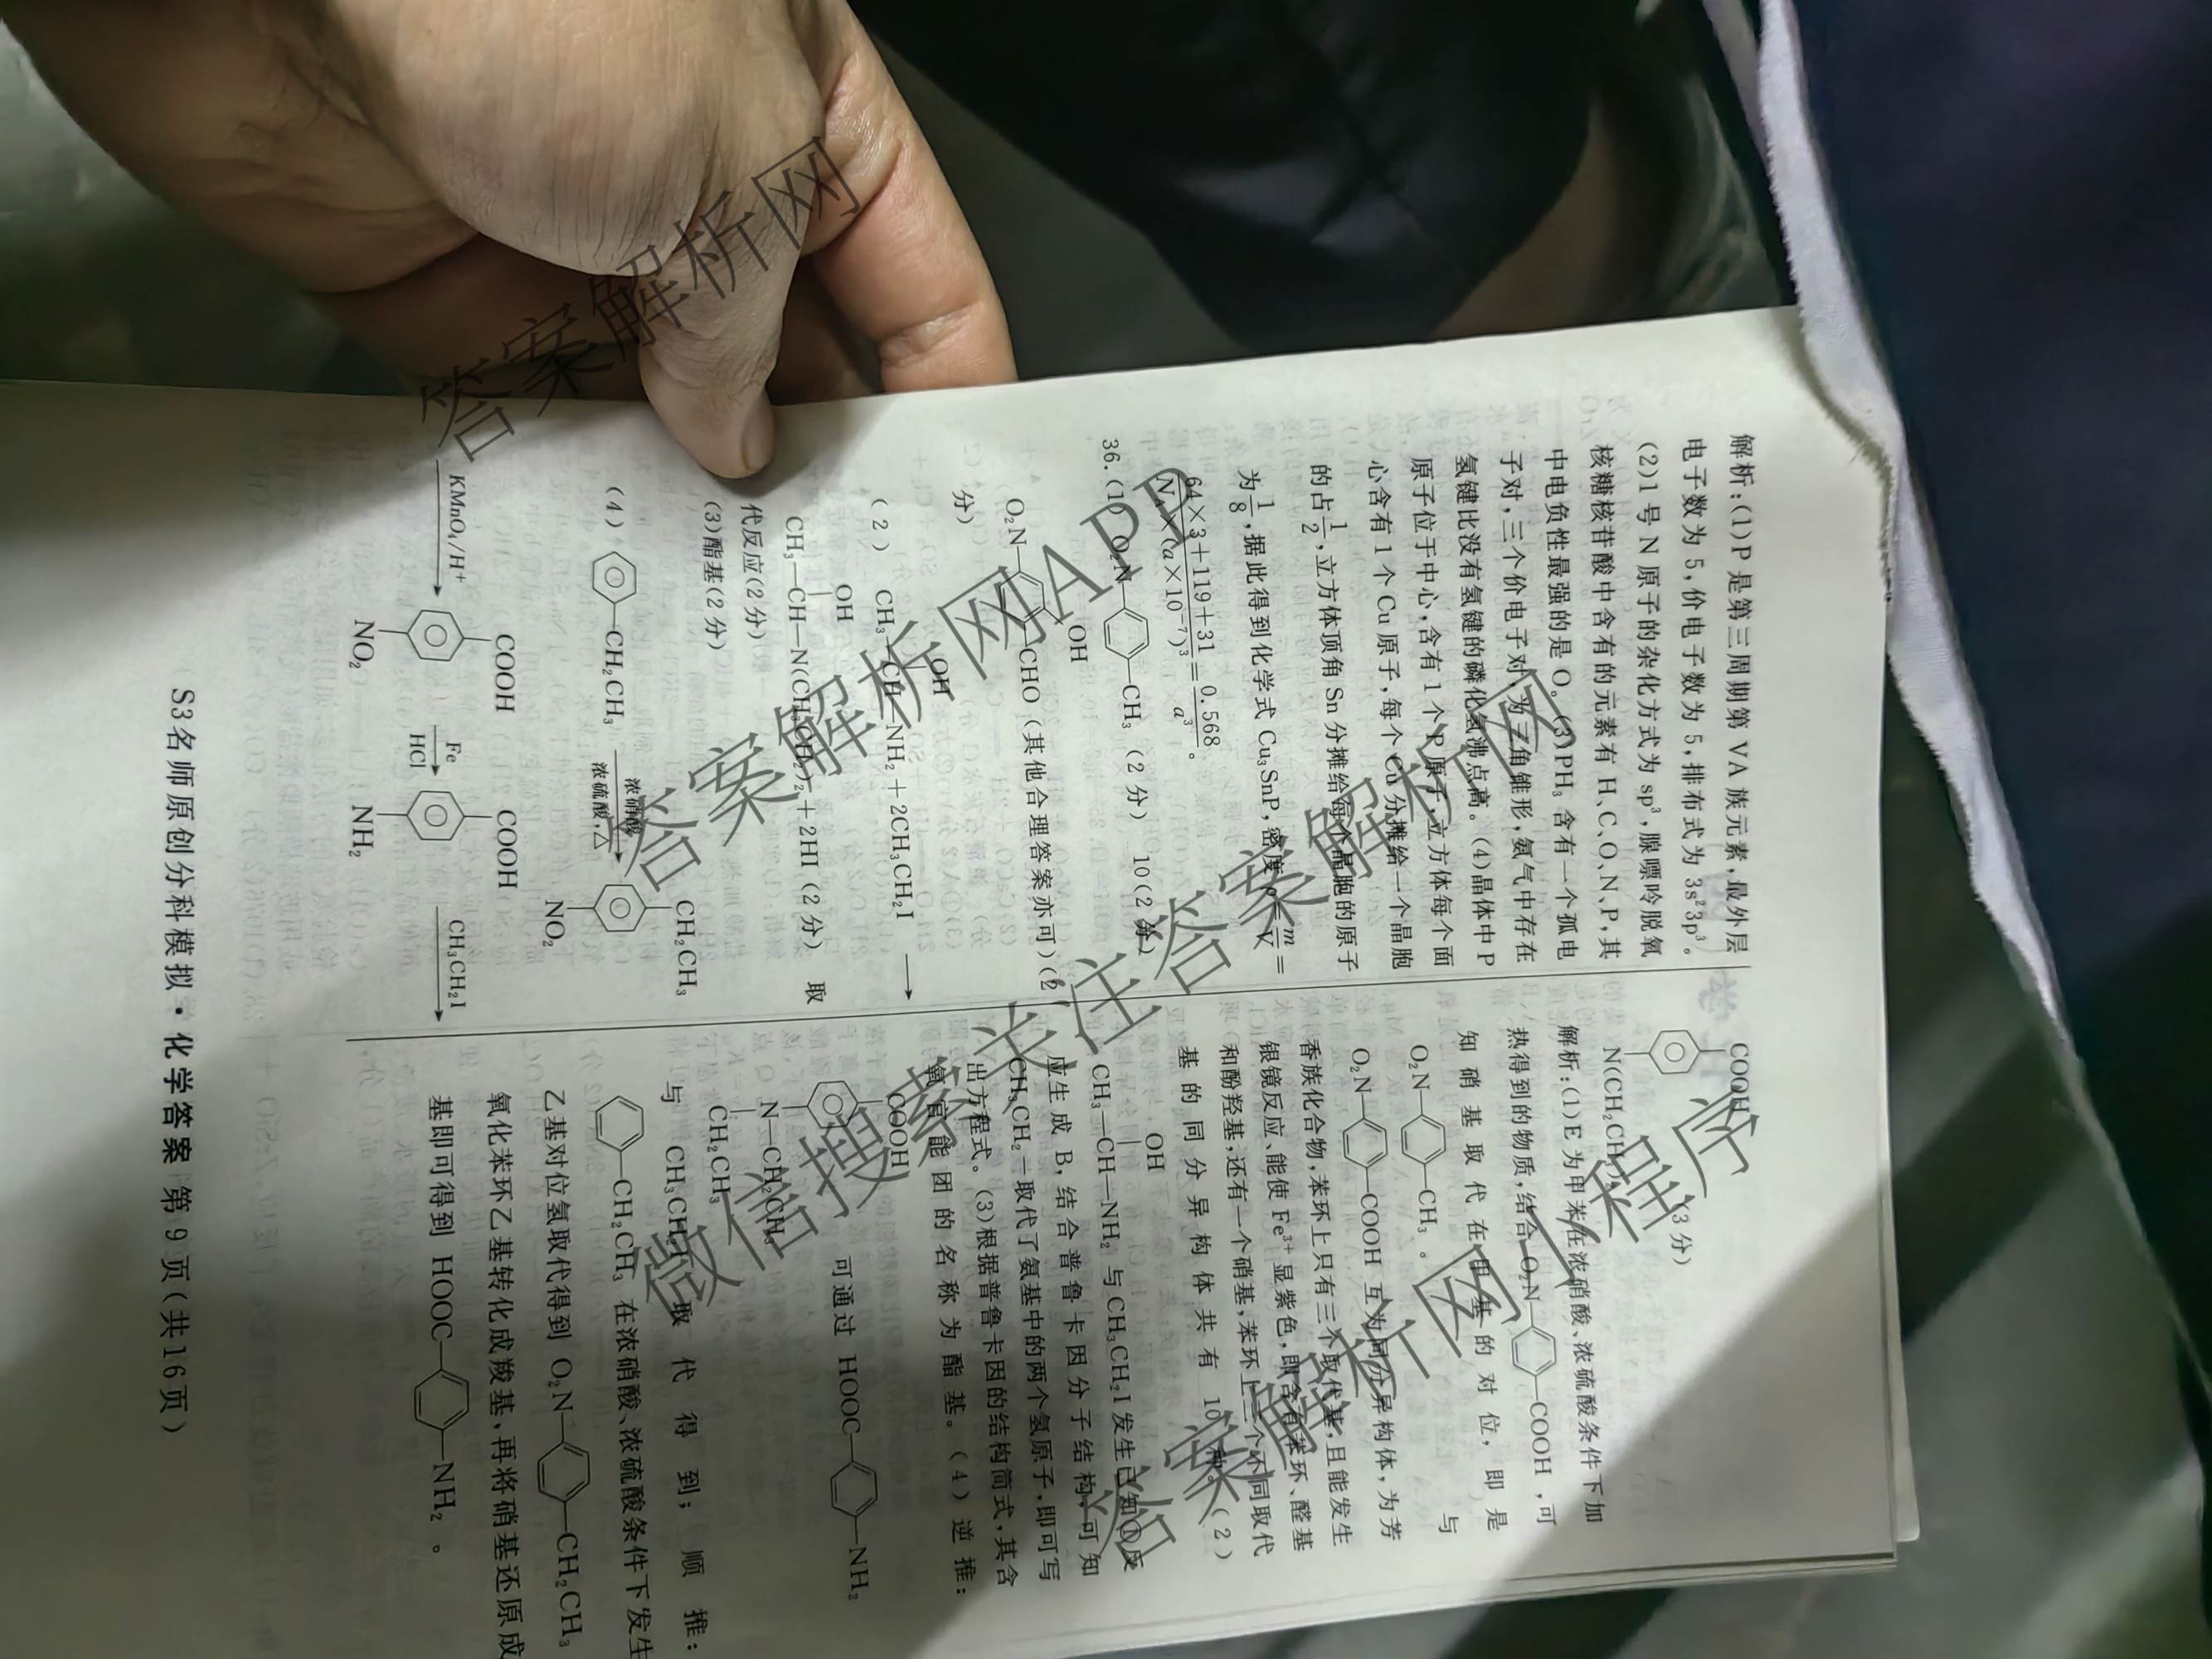 解析:(1)P 是第三周期第 ⅤA 族元素,最外层
电子数为 5,价电子数为 5,排布式为 3s²3p³。
(2)1 号 N 原子的杂化方式为 sp³,腺嘌呤脱氧
核糖核苷酸中含有的元素有 H、C、O、N、P,其
中电负性最强的是 O。(3)PH₃ 含有一个孤电
子对,三个价电子对,为三角锥形,氨气中存在
氢键比没有氢键的磷化氢沸点高。(4)晶体中 P
原子位于中心,含有 1 个 P 原子,立方体每个面
心含有 1 个 Cu 原子,每个 Cu 分摊给一个晶胞
的占 1/2,立方体顶角 Sn 分摊给每个晶胞的原子
为 1/8,据此得到化学式 Cu₃SnP,密度 ρ=m/V=
(64×3+119+31)/(N_A×(a×10⁻⁷)³)=0.568/a³。
36.(1) O₂N— —CH₃ (2 分) 10(2 分)
OH
O₂N— —CHO (其他合理答案亦可)(2
分)
OH
(2) CH₃—CH—NH₂+2CH₃CH₂I ⟶
OH
CH₃—CH—N(CH₃CH₂)₂+2HI (2 分) 取
代反应(2 分)
(3)酯基(2 分)
(4) —CH₂CH₃ 浓硝酸 浓硫酸,△ → CH₂CH₃ NO₂
KMnO₄/H⁺ → COOH NO₂ Fe HCl → COOH NH₂ CH₃CH₂I →
COOH
N(CH₂CH₃)₂ (3 分)
解析:(1)E 为甲苯在浓硝酸、浓硫酸条件下加
热得到的物质,结合 O₂N— —COOH,可
知硝基取代在甲基的对位,即是
O₂N— —CH₃。 与
O₂N— —COOH 互为同分异构体,为芳
香族化合物,苯环上只有三个取代基,且能发生
银镜反应、能使 Fe³⁺ 显紫色,即含有苯环、醛基
和酚羟基,还有一个硝基,苯环上三个不同取代
基的同分异构体共有 10 种。(2)
OH
CH₃—CH—NH₂ 与 CH₃CH₂I 发生已知①反
应生成 B,结合普鲁卡因分子结构,可知
CH₃CH₂—取代了氨基中的两个氢原子,即可写
出方程式。(3)根据普鲁卡因的结构简式,其含
氧官能团的名称为酯基。(4)逆推:
COOH
N—CH₂CH₃
CH₂CH₃
可通过 HOOC— —NH₂
与 CH₃CH₂I 取代得到;顺推:
—CH₂CH₃ 在浓硝酸、浓硫酸条件下发生
乙基对位氢取代得到 O₂N— —CH₂CH₃
氧化苯环乙基转化成羧基,再将硝基还原成
基即可得到 HOOC— —NH₂。
S3名师原创分科模拟·化学答案 第9页(共16页)
答案解析网
答案解析网APP
答案解析网
微信搜索关注答案解析网
答案解析网小程序